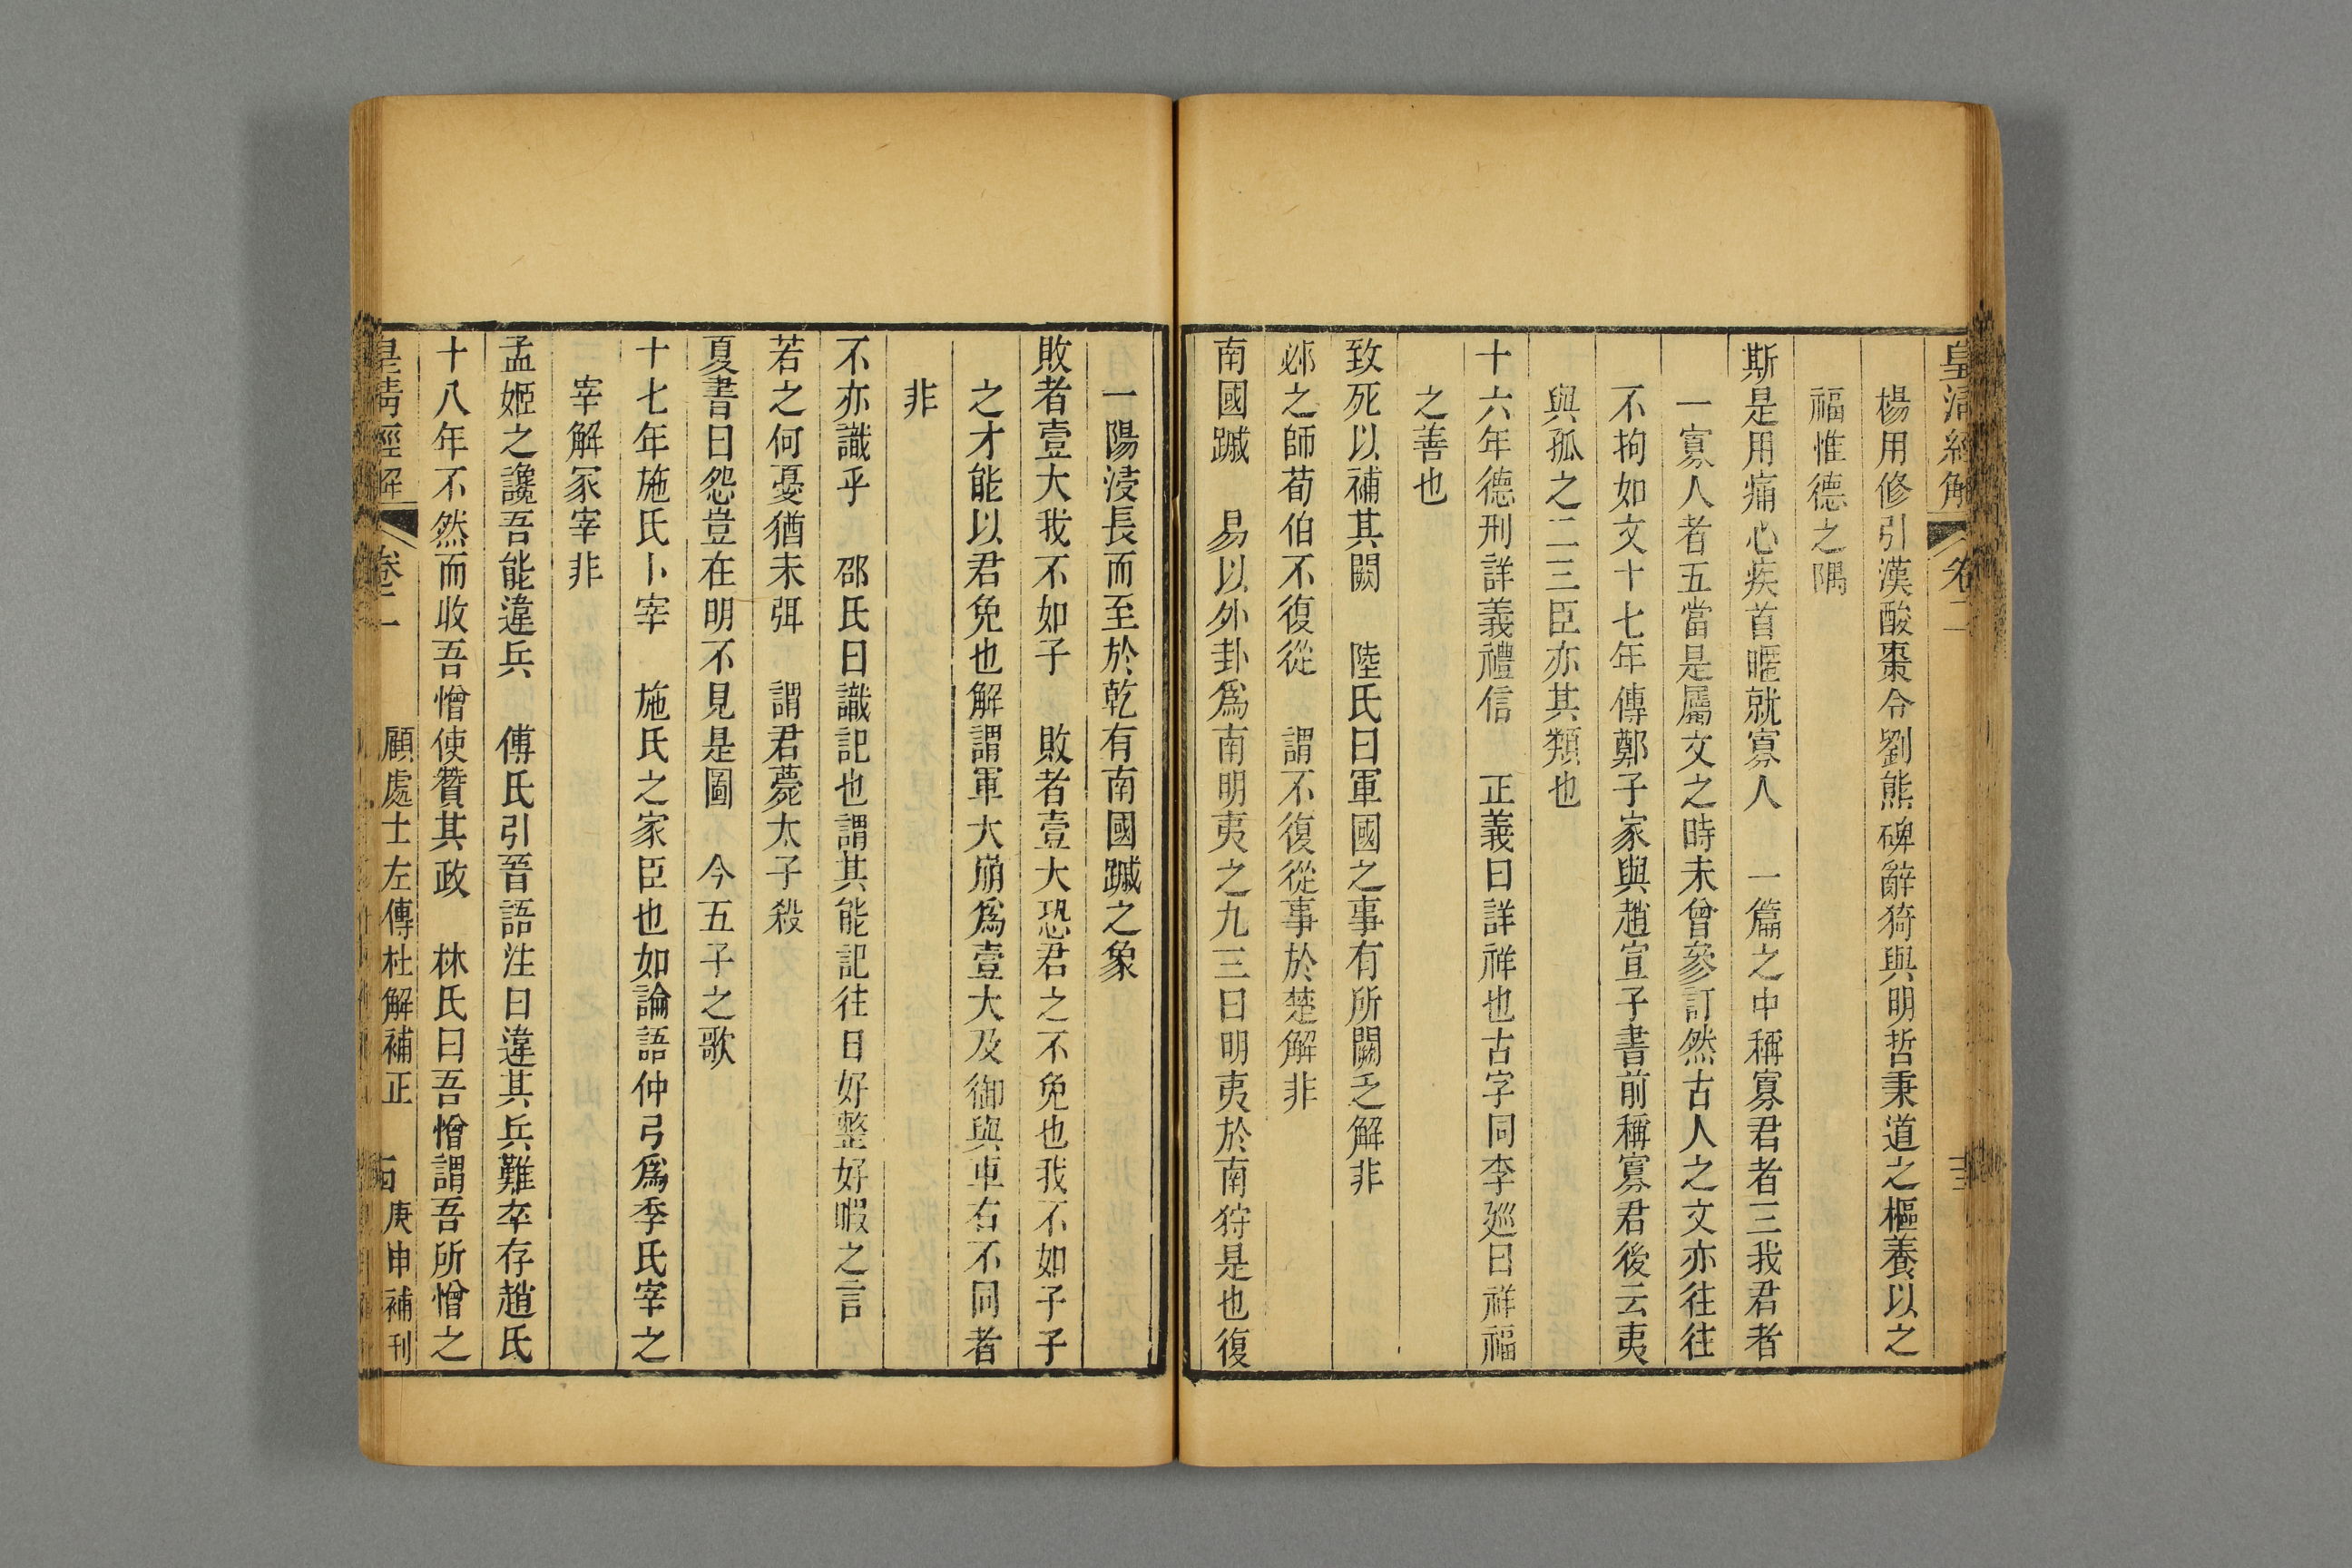 皇清經解 卷二 三
楊用修引漢酸棗令劉熊碑辭猗與明哲秉道之樞養以之
福惟德之隅
斯是用痛心疾首暱就寡人 一篇之中稱寡君者三我君者
一寡人者五當是屬文之時未曾參訂然古人之文亦往往
不拘如文十七年傳鄭子家與趙宣子書前稱寡君後云夷
與孤之二三臣亦其類也
十六年德刑詳義禮信 正義曰詳祥也古字同李廵曰祥福
之善也
致死以補其闕 陸氏曰軍國之事有所闕乏解非
邲之師荀伯不復從 謂不復從事於楚解非
南國䠞 易以外卦爲南明夷之九三曰明夷於南狩是也復
一陽浸長而至於乾有南國䠞之象
敗者壹大我不如子 敗者壹大恐君之不免也我不如子子
之才能以君免也解謂軍大崩爲壹大及御與車右不同者
非
不亦識乎 邵氏曰識記也謂其能記往日好整好暇之言
若之何憂猶未弭 謂君薨太子殺
夏書曰怨豈在明不見是圖 今五子之歌
十七年施氏卜宰 施氏之家臣也如論語仲弓爲季氏宰之
宰解冢宰非
孟姬之讒吾能違兵 傅氏引晉語注曰違其兵難卒存趙氏
十八年不然而收吾憎使贊其政 林氏曰吾憎謂吾所憎之
皇清經解 卷二 顧處士左傳杜解補正 庚申補刊